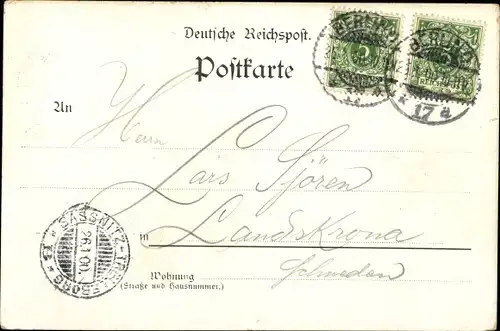 Deutsche Reichspost.
Postkarte
An
Herrn
Lars Sjören
in Landskrona
Schweden
Wohnung
(Straße und Hausnummer.)
BERLIN
17 a
BERLIN
17 a
5
SASSNITZ-TRELLEBORG
26.1.00.
B